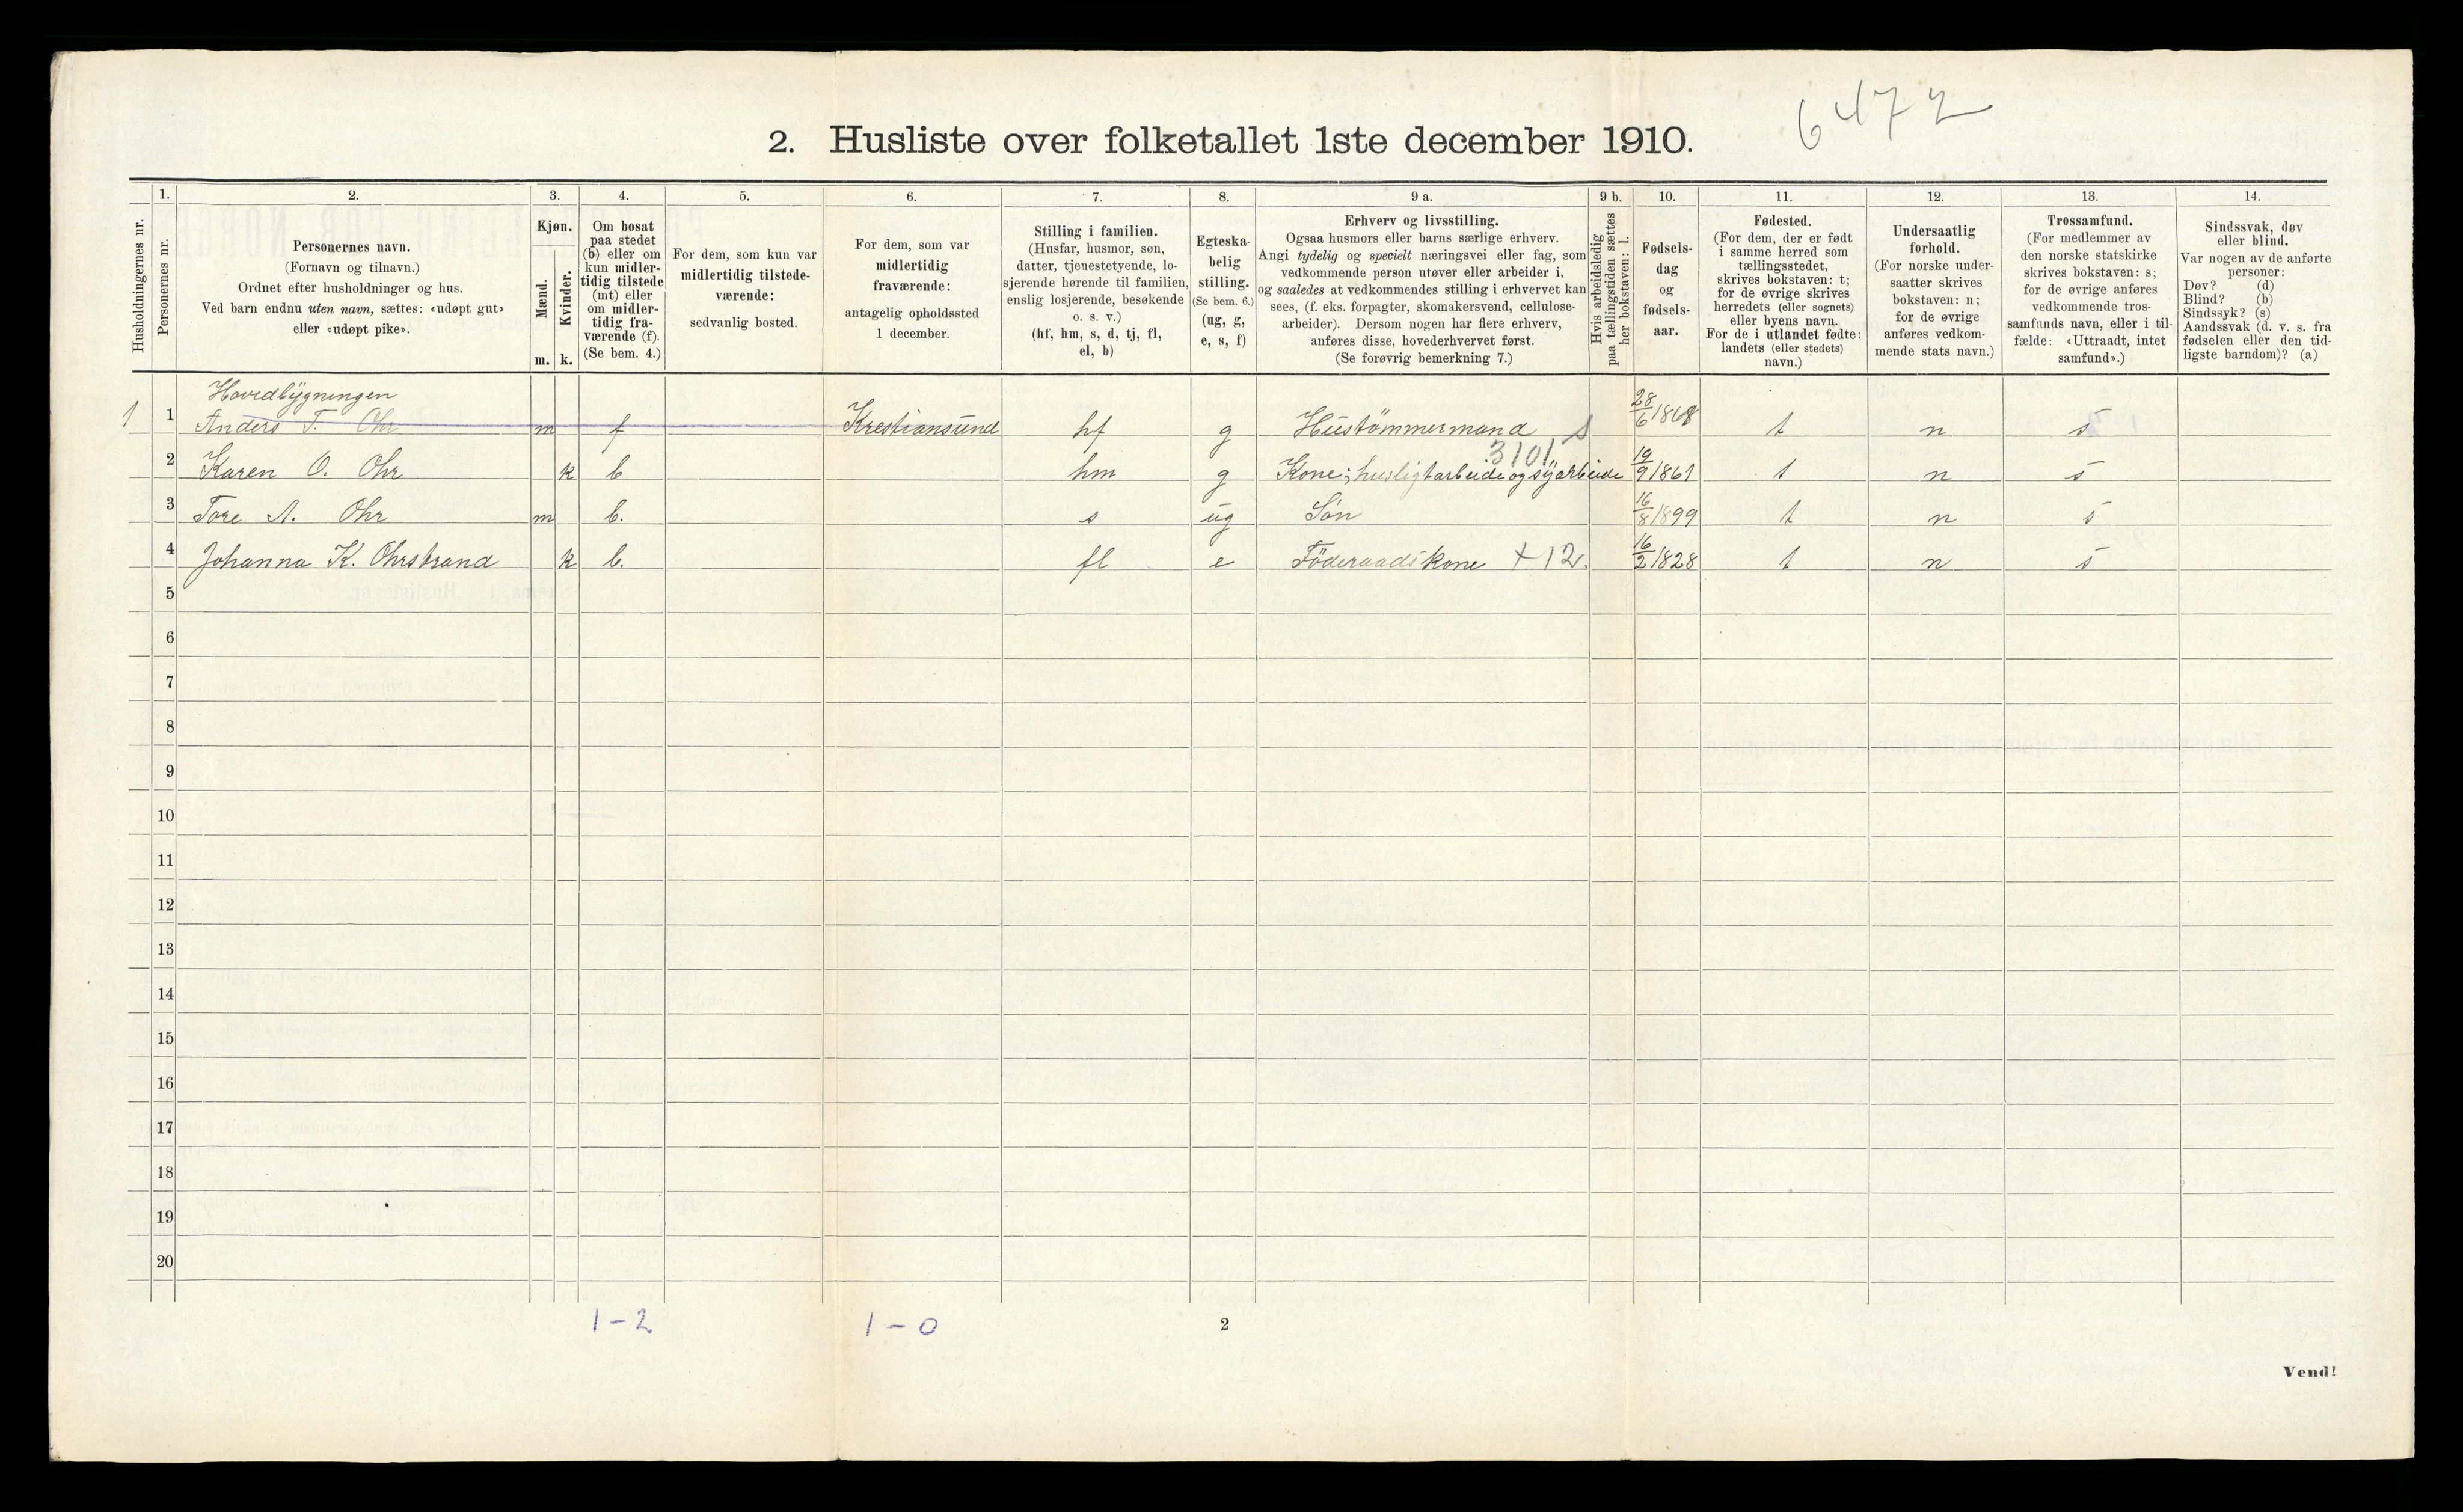 6472
2. Husliste over folketallet 1ste december 1910.
Husholdningernes nr.
1.
Personernes nr.
2.
Personernes navn.
(Fornavn og tilnavn.)
Ordnet efter husholdninger og hus.
Ved barn endnu uten navn, sættes: «udøpt gut»
eller «udøpt pike».
3.
Kjøn.
Mænd.
Kvinder.
m. k.
4.
Om bosat
paa stedet
(b) eller om
kun midler-
tidig tilstede
(mt) eller
om midler-
tidig fra-
værende (f).
(Se bem. 4.)
5.
For dem, som kun var
midlertidig tilstede-
værende:
sedvanlig bosted.
6.
For dem, som var
midlertidig
fraværende:
antagelig opholdssted
1 december.
7.
Stilling i familien.
(Husfar, husmor, søn,
datter, tjenestetyende, lo-
sjerende hørende til familien,
enslig losjerende, besøkende
o. s. v.)
(hf, hm, s, d, tj, fl,
el, b)
8.
Egteska-
belig
stilling.
(Se bem. 6.)
(ug, g,
e, s, f)
9 a.
Erhverv og livsstilling.
Ogsaa husmors eller barns særlige erhverv.
Angi tydelig og specielt næringsvei eller fag, som
vedkommende person utøver eller arbeider i,
og saaledes at vedkommendes stilling i erhvervet kan
sees, (f. eks. forpagter, skomakersvend, cellulose-
arbeider). Dersom nogen har flere erhverv,
anføres disse, hovederhvervet først.
(Se forøvrig bemerkning 7.)
9 b.
Hvis arbeidsledig
paa tællingstiden sættes
her bokstaven: l.
10.
Fødsels-
dag
og
fødsels-
aar.
11.
Fødested.
(For dem, der er født
i samme herred som
tællingsstedet,
skrives bokstaven: t;
for de øvrige skrives
herredets (eller sognets)
eller byens navn.
For de i utlandet fødte:
landets (eller stedets)
navn.)
12.
Undersaatlig
forhold.
(For norske under-
saatter skrives
bokstaven: n;
for de øvrige
anføres vedkom-
mende stats navn.)
13.
Trossamfund.
(For medlemmer av
den norske statskirke
skrives bokstaven: s;
for de øvrige anføres
vedkommende tros-
samfunds navn, eller i til-
fælde: «Uttraadt, intet
samfund».)
14.
Sindssvak, døv
eller blind.
Var nogen av de anførte
personer:
Døv? (d)
Blind? (b)
Sindssyk? (s)
Aandssvak (d. v. s. fra
fødselen eller den tid-
ligste barndom)? (a)
Hovedbygningen
1 1 Anders T. Ohr m f Krestiansund hf g Hustömmermand s 28/6 1868 t n s
3101.
2 Karen O. Ohr k b hm g Kone; husligt arbeide og syarbeide 19/9 1861 t n s
3 Tore A. Ohr m b. s ug Sön 16/8 1899 t n s
4 Johanna K. Ohrstrand k b. fl e Föderaadskone +12. 16/2 1828 t n s
5
6
7
8
9
10
11
12
13
14
15
16
17
18
19
20
1-2 1-0 2
Vend!